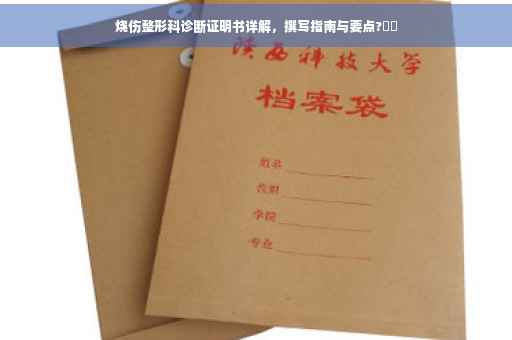 烧伤整形科诊断证明书详解，撰写指南与要点?
陕西科技大学
档案袋
姓名
学院
专业